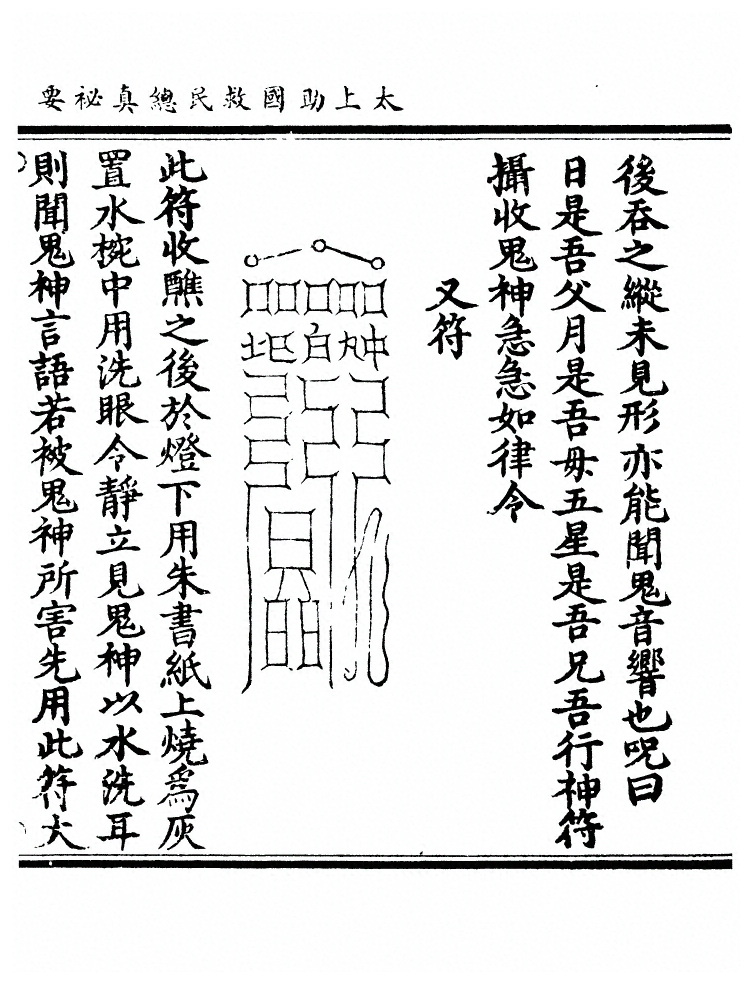 太上助國救民總真祕要
後吞之縱未見形亦能聞鬼音響也呪曰
日是吾父月是吾母五星是吾兄吾行神符
攝收鬼神急急如律令
又符
此符收醮之後於燈下用朱書紙上燒為灰
置水椀中用洗眼令靜立見鬼神以水洗耳
則聞鬼神言語若被鬼神所害先用此符大